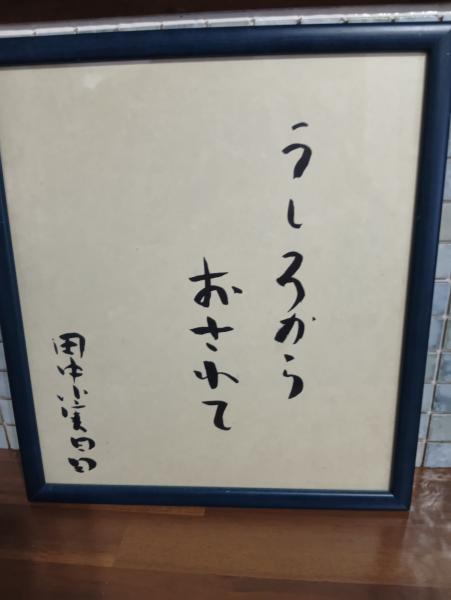 うしろから
おされて
田中小実昌